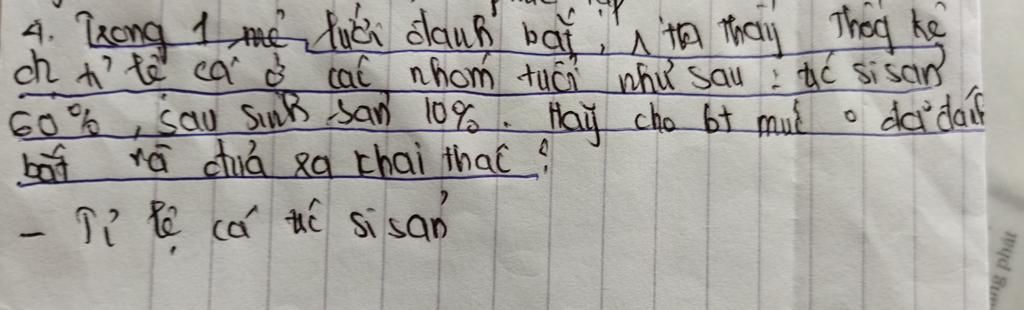 4. Trong 1 mẻ lưới đánh bắt, ta thấy thốg kê
tỉ lệ cá ở các nhóm tuổi như sau: tc si sản
60%, sau sinh sản 10%. Hãy cho bt mức độ đánh
bắt và đưa ra khai thác?
- Tỉ lệ cá tc si sản
ng phát